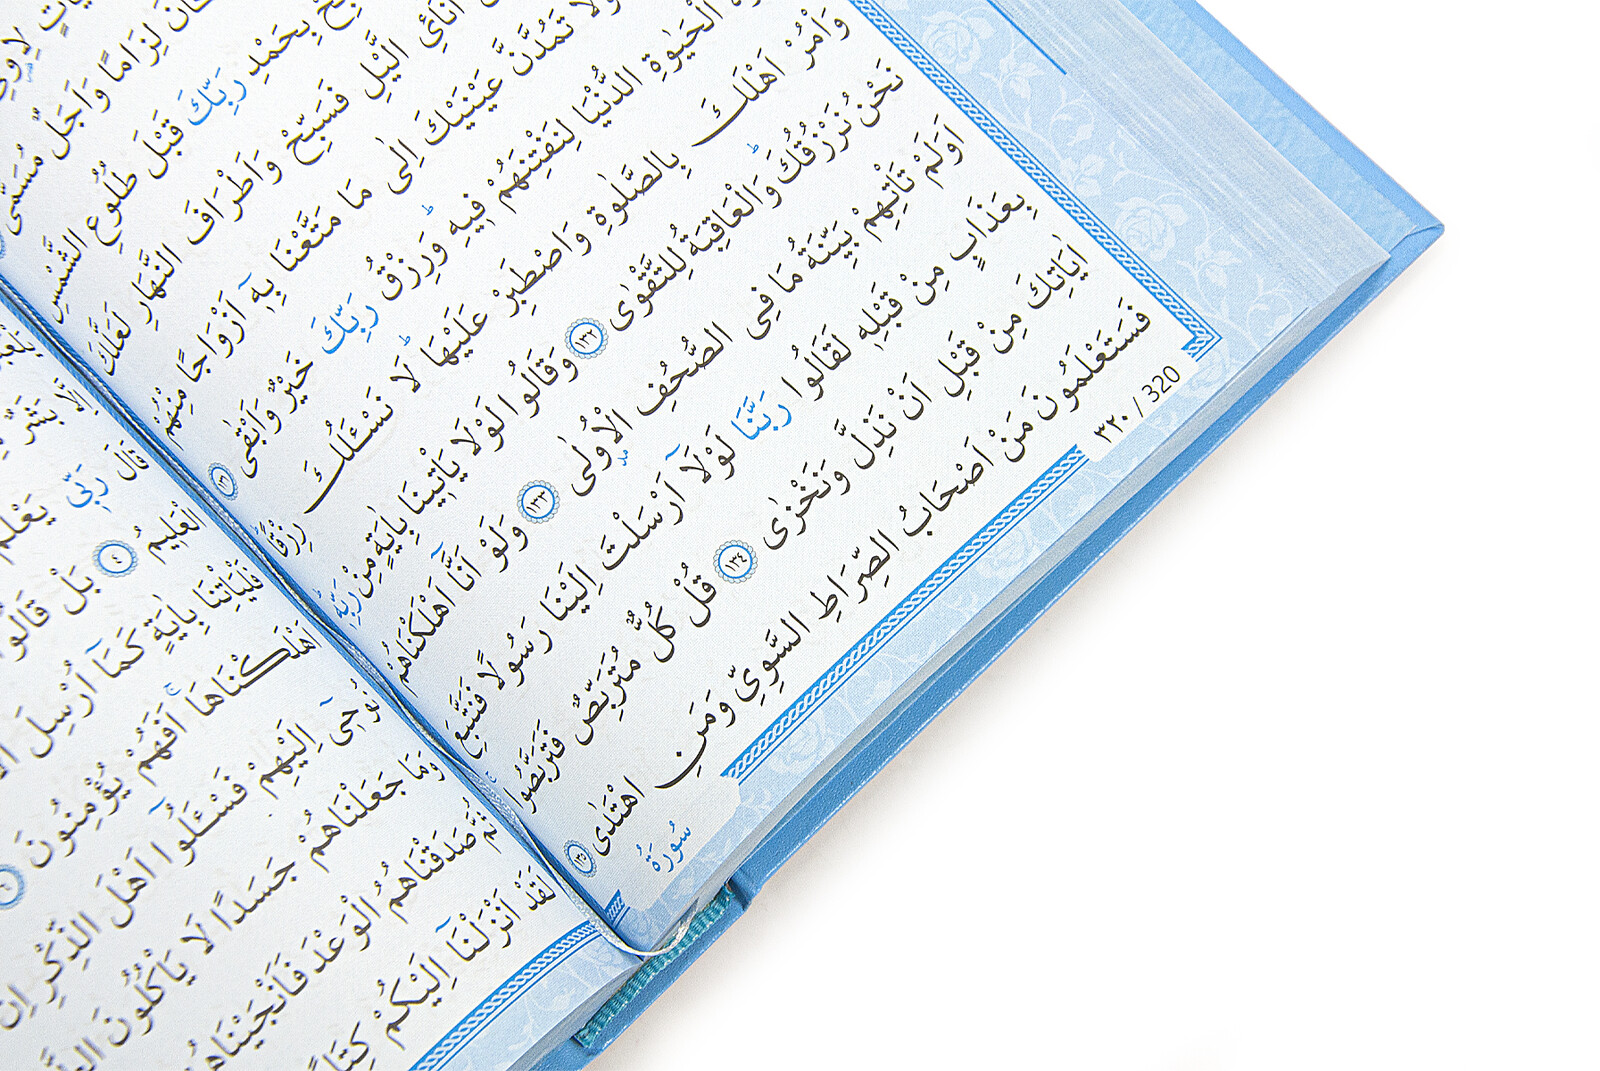 لِزَامًا وَاَجَلٌ مُسَمًّى
بِحَمْدِ رَبِّكَ قَبْلَ طُلُوعِ الشَّمْسِ
اٰنَآئِ الَّيْلِ فَسَبِّحْ وَاَطْرَافَ النَّهَارِ لَعَلَّكَ
وَلَا تَمُدَّنَّ عَيْنَيْكَ اِلٰى مَا مَتَّعْنَا بِهٖٓ اَزْوَاجًا مِنْهُمْ
الْحَيٰوةِ الدُّنْيَا لِنَفْتِنَهُمْ فٖيهِ وَرِزْقُ رَبِّكَ خَيْرٌ وَاَبْقٰى ١٣١
وَأْمُرْ اَهْلَكَ بِالصَّلٰوةِ وَاصْطَبِرْ عَلَيْهَا لَا نَسْـَٔلُكَ رِزْقًا
نَحْنُ نَرْزُقُكَ وَالْعَاقِبَةُ لِلتَّقْوٰى ١٣٢ وَقَالُوا لَوْلَا يَأْتٖينَا بِاٰيَةٍ مِنْ رَبِّهٖ
اَوَلَمْ تَأْتِهِمْ بَيِّنَةُ مَا فِى الصُّحُفِ الْاُولٰى ١٣٣ وَلَوْ اَنَّٓا اَهْلَكْنَاهُمْ
بِعَذَابٍ مِنْ قَبْلِهٖ لَقَالُوا رَبَّنَا لَوْلَٓا اَرْسَلْتَ اِلَيْنَا رَسُولًا فَنَتَّبِعَ
اٰيَاتِكَ مِنْ قَبْلِ اَنْ نَذِلَّ وَنَخْزٰى ١٣٤ قُلْ كُلٌّ مُتَرَبِّصٌ فَتَرَبَّصُوا
فَسَتَعْلَمُونَ مَنْ اَصْحَابُ الصِّرَاطِ السَّوِىِّ وَمَنِ اهْتَدٰى ١٣٥
سُورَةُ
٣٢٠ / 320
اِلَّا بَشَرٌ
قَالَ رَبّٖى يَعْلَمُ
الْعَلٖيمُ ٤ بَلْ قَالُوا
فَلْيَأْتِنَا بِاٰيَةٍ كَمَٓا اُرْسِلَ
اَهْلَكْنَاهَا اَفَهُمْ يُؤْمِنُونَ ٦
نُوحٖٓى اِلَيْهِمْ فَسْـَٔلُٓوا اَهْلَ الذِّكْرِ اِنْ
وَمَا جَعَلْنَاهُمْ جَسَدًا لَا يَأْكُلُونَ
ثُمَّ صَدَقْنَاهُمُ الْوَعْدَ فَاَنْجَيْنَاهُمْ
لَقَدْ اَنْزَلْنَٓا اِلَيْكُمْ كِتَابًا